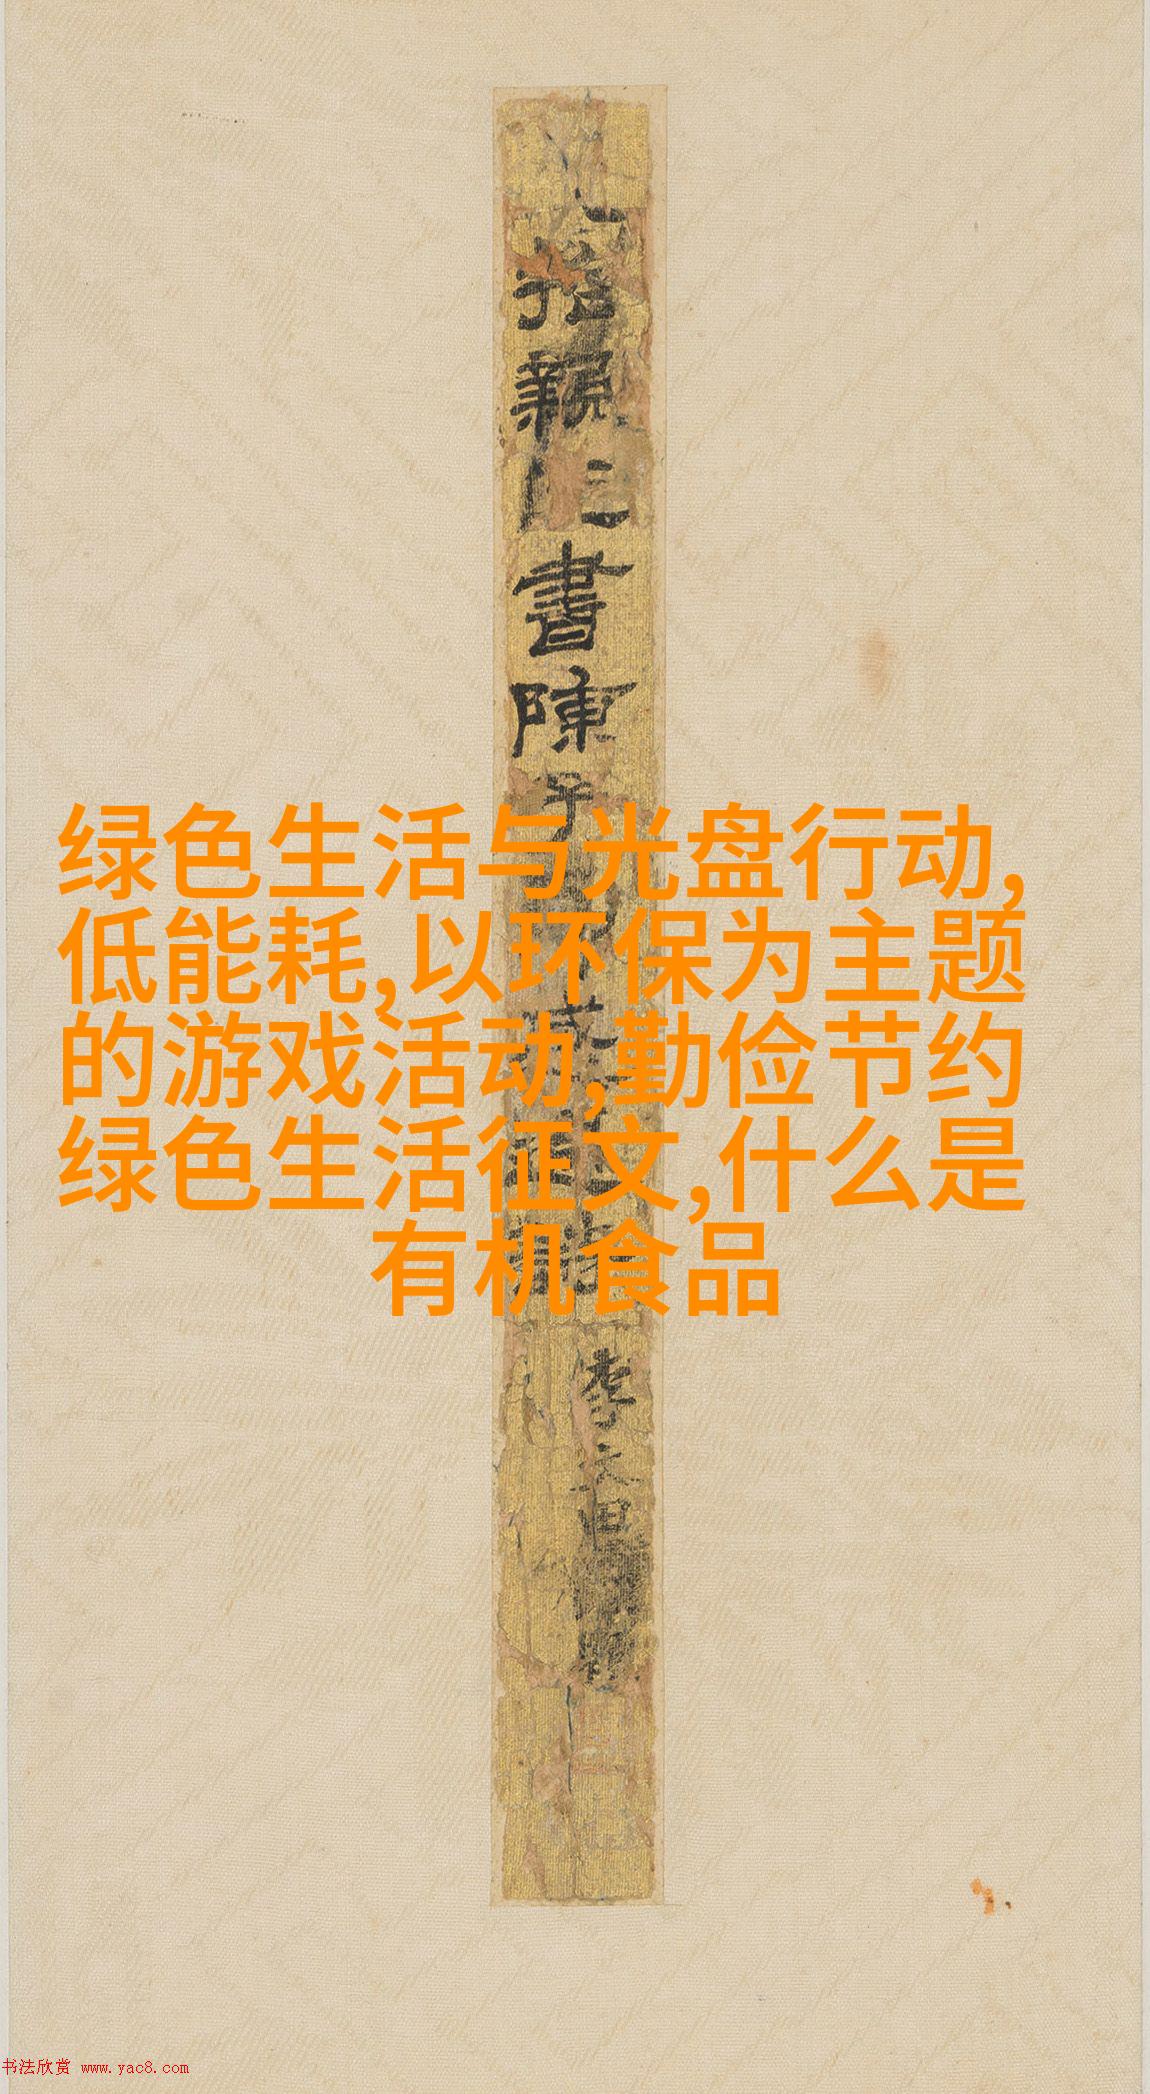 绿色生活与光盘行动,
低能耗,以环保为主题
的游戏活动,勤俭节约
绿色生活征文,什么是
有机食品
書陳子
李文田
书法欣赏 www.yac8.com